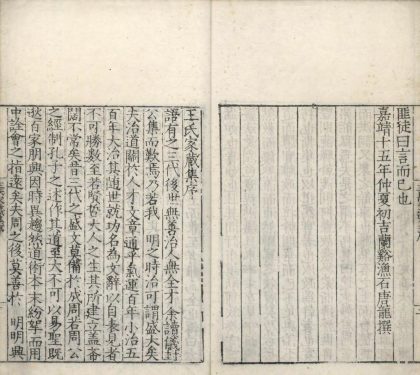 匪徒曰言而已也
嘉靖十五年仲夏初吉蘭谿漁石唐龍撰
王氏家藏集序
語有之三代後世無善治人無全才余讀儀封
公集而歎焉乃若我 明之時治可謂盛大矣
夫治道關於人才文章通乎氣運百年小治五
百年大治其随世就功名為文辭以自表見者
不可勝數至若賢哲大人之生其所建立盖嵛
闊不常矣昔三代之盛文莫備於成周若周公
之經制孔子之述作其道至大不可以易聖既
逖百家朋興因時異趨然道術本末紛挐而用
中詮會之指遠矣故周之後莫善於 明明興